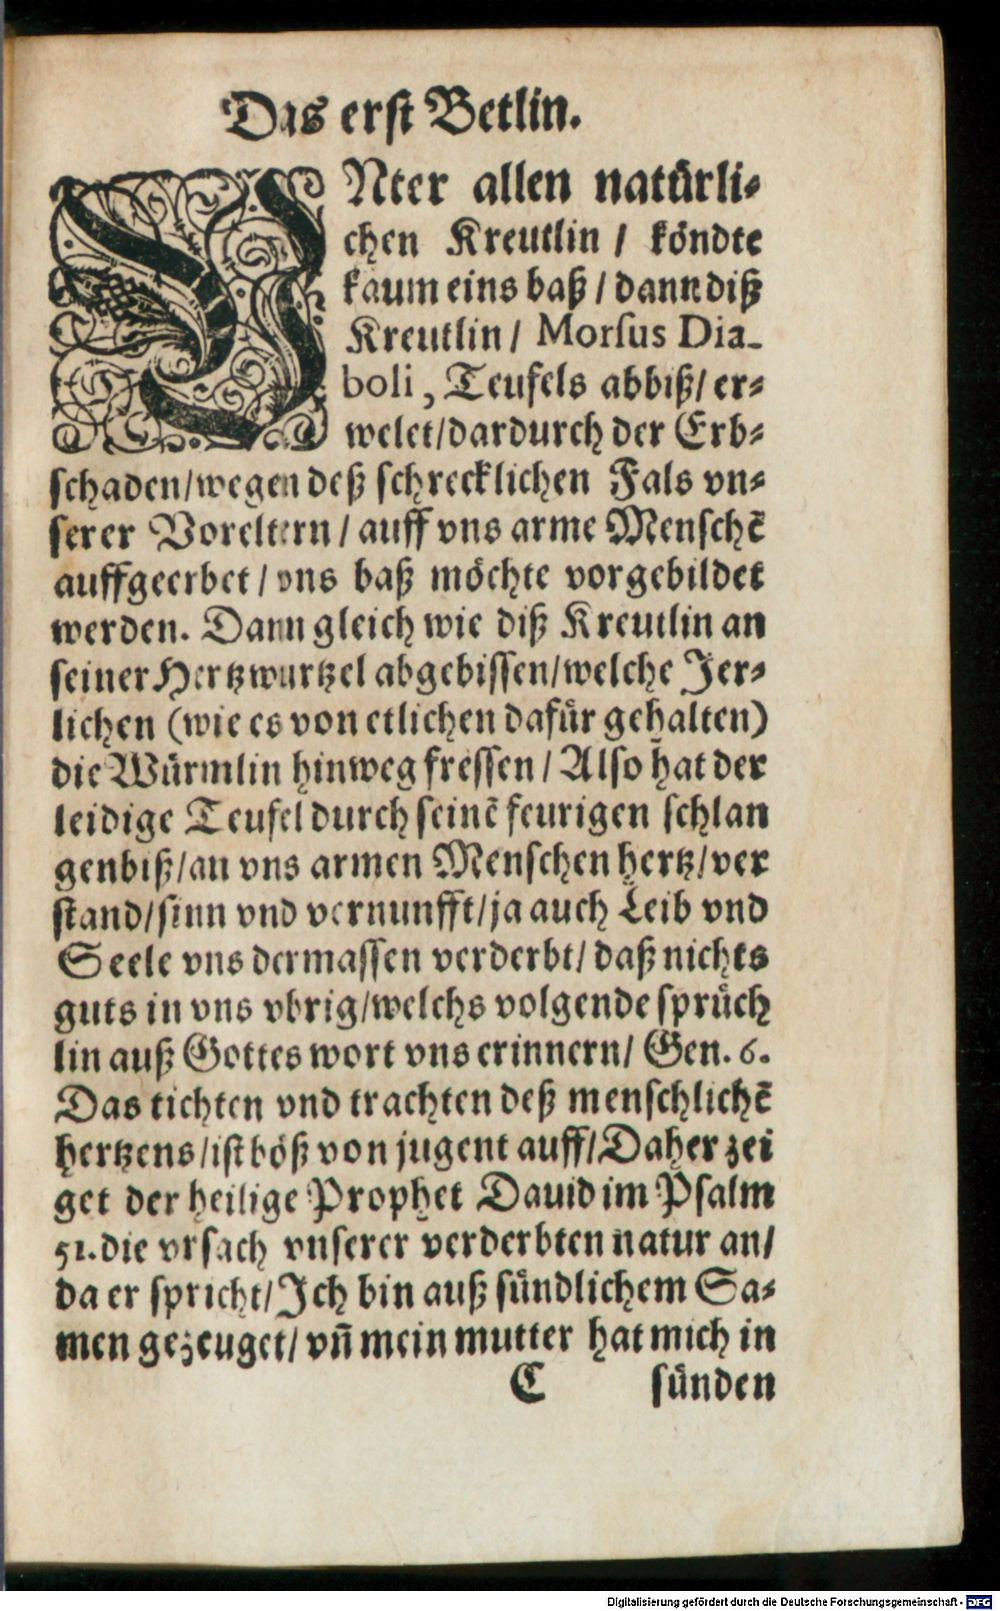 Das erst Betlin.
VNter allen natürli-
chen Kreutlin / köndte
kaum eins baß / dann diß
Kreutlin / Morsus Dia-
boli, Teufels abbiß / er-
welet / dardurch der Erb-
schaden / wegen deß schrecklichen Fals vn-
serer Voreltern / auff vns arme Menschē
auffgeerbet / vns baß möchte vorgebildet
werden. Dann gleich wie diß Kreutlin an
seiner Hertzwurtzel abgebissen / welche Jer-
lichen (wie es von etlichen dafür gehalten)
die Würmlin hinweg fressen / Also hat der
leidige Teufel durch seinē feurigen schlan
genbiß / an vns armen Menschen hertz / ver
stand / sinn vnd vernunfft / ja auch Leib vnd
Seele vns dermassen verderbt / daß nichts
guts in vns vbrig / welchs volgende sprüch
lin auß Gottes wort vns erinnern / Gen. 6.
Das tichten vnd trachten deß menschlichē
hertzens / ist böß von jugent auff / Daher zei
get der heilige Prophet Dauid im Psalm
51. die vrsach vnserer verderbten natur an /
da er spricht / Ich bin auß sündlichem Sa-
men gezeuget / vñ mein mutter hat mich in
C sünden
Digitalisierung gefördert durch die Deutsche Forschungsgemeinschaft - DFG